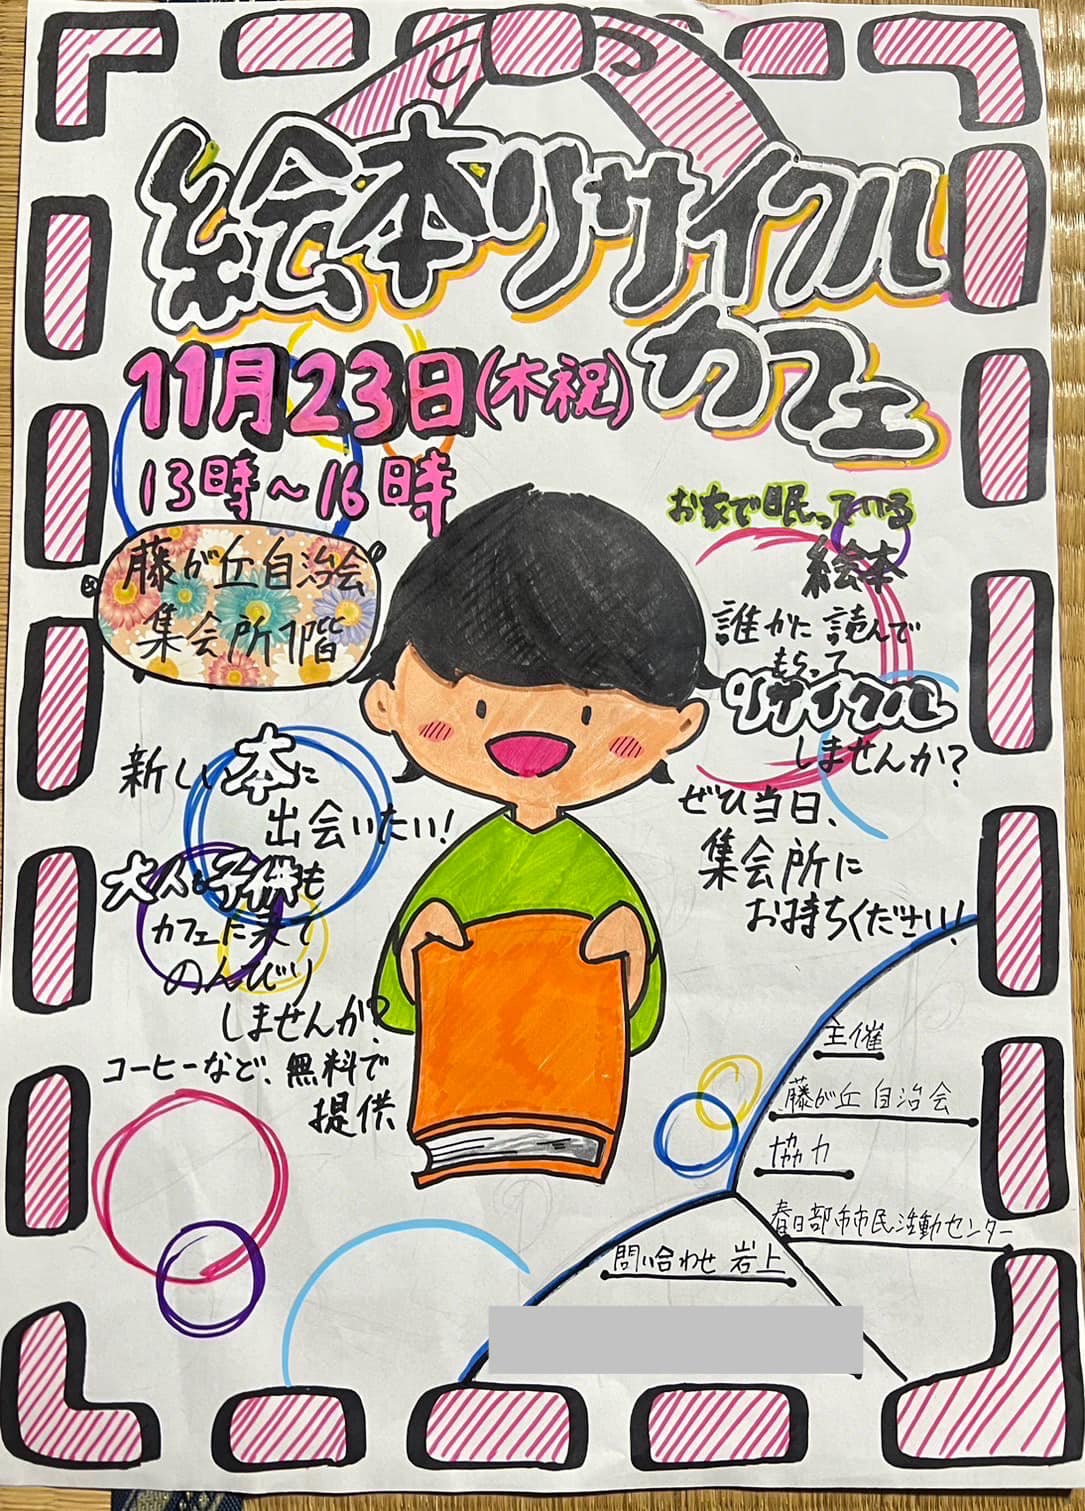 絵本リサイクル
カフェ
11月23日(木祝)
13時~16時
藤が丘自治会
集会所1階
お家で眠っている
絵本
誰かに読んで
もらって
リサイクル
しませんか?
ぜひ当日、
集会所に
お持ちください!
新しい本に
出会いたい!
大人も子供も
カフェに来て
のんびり
しませんか?
コーヒーなど、無料で
提供
主催
藤が丘自治会
協力
春日部市市民活動センター
問い合わせ 岩上